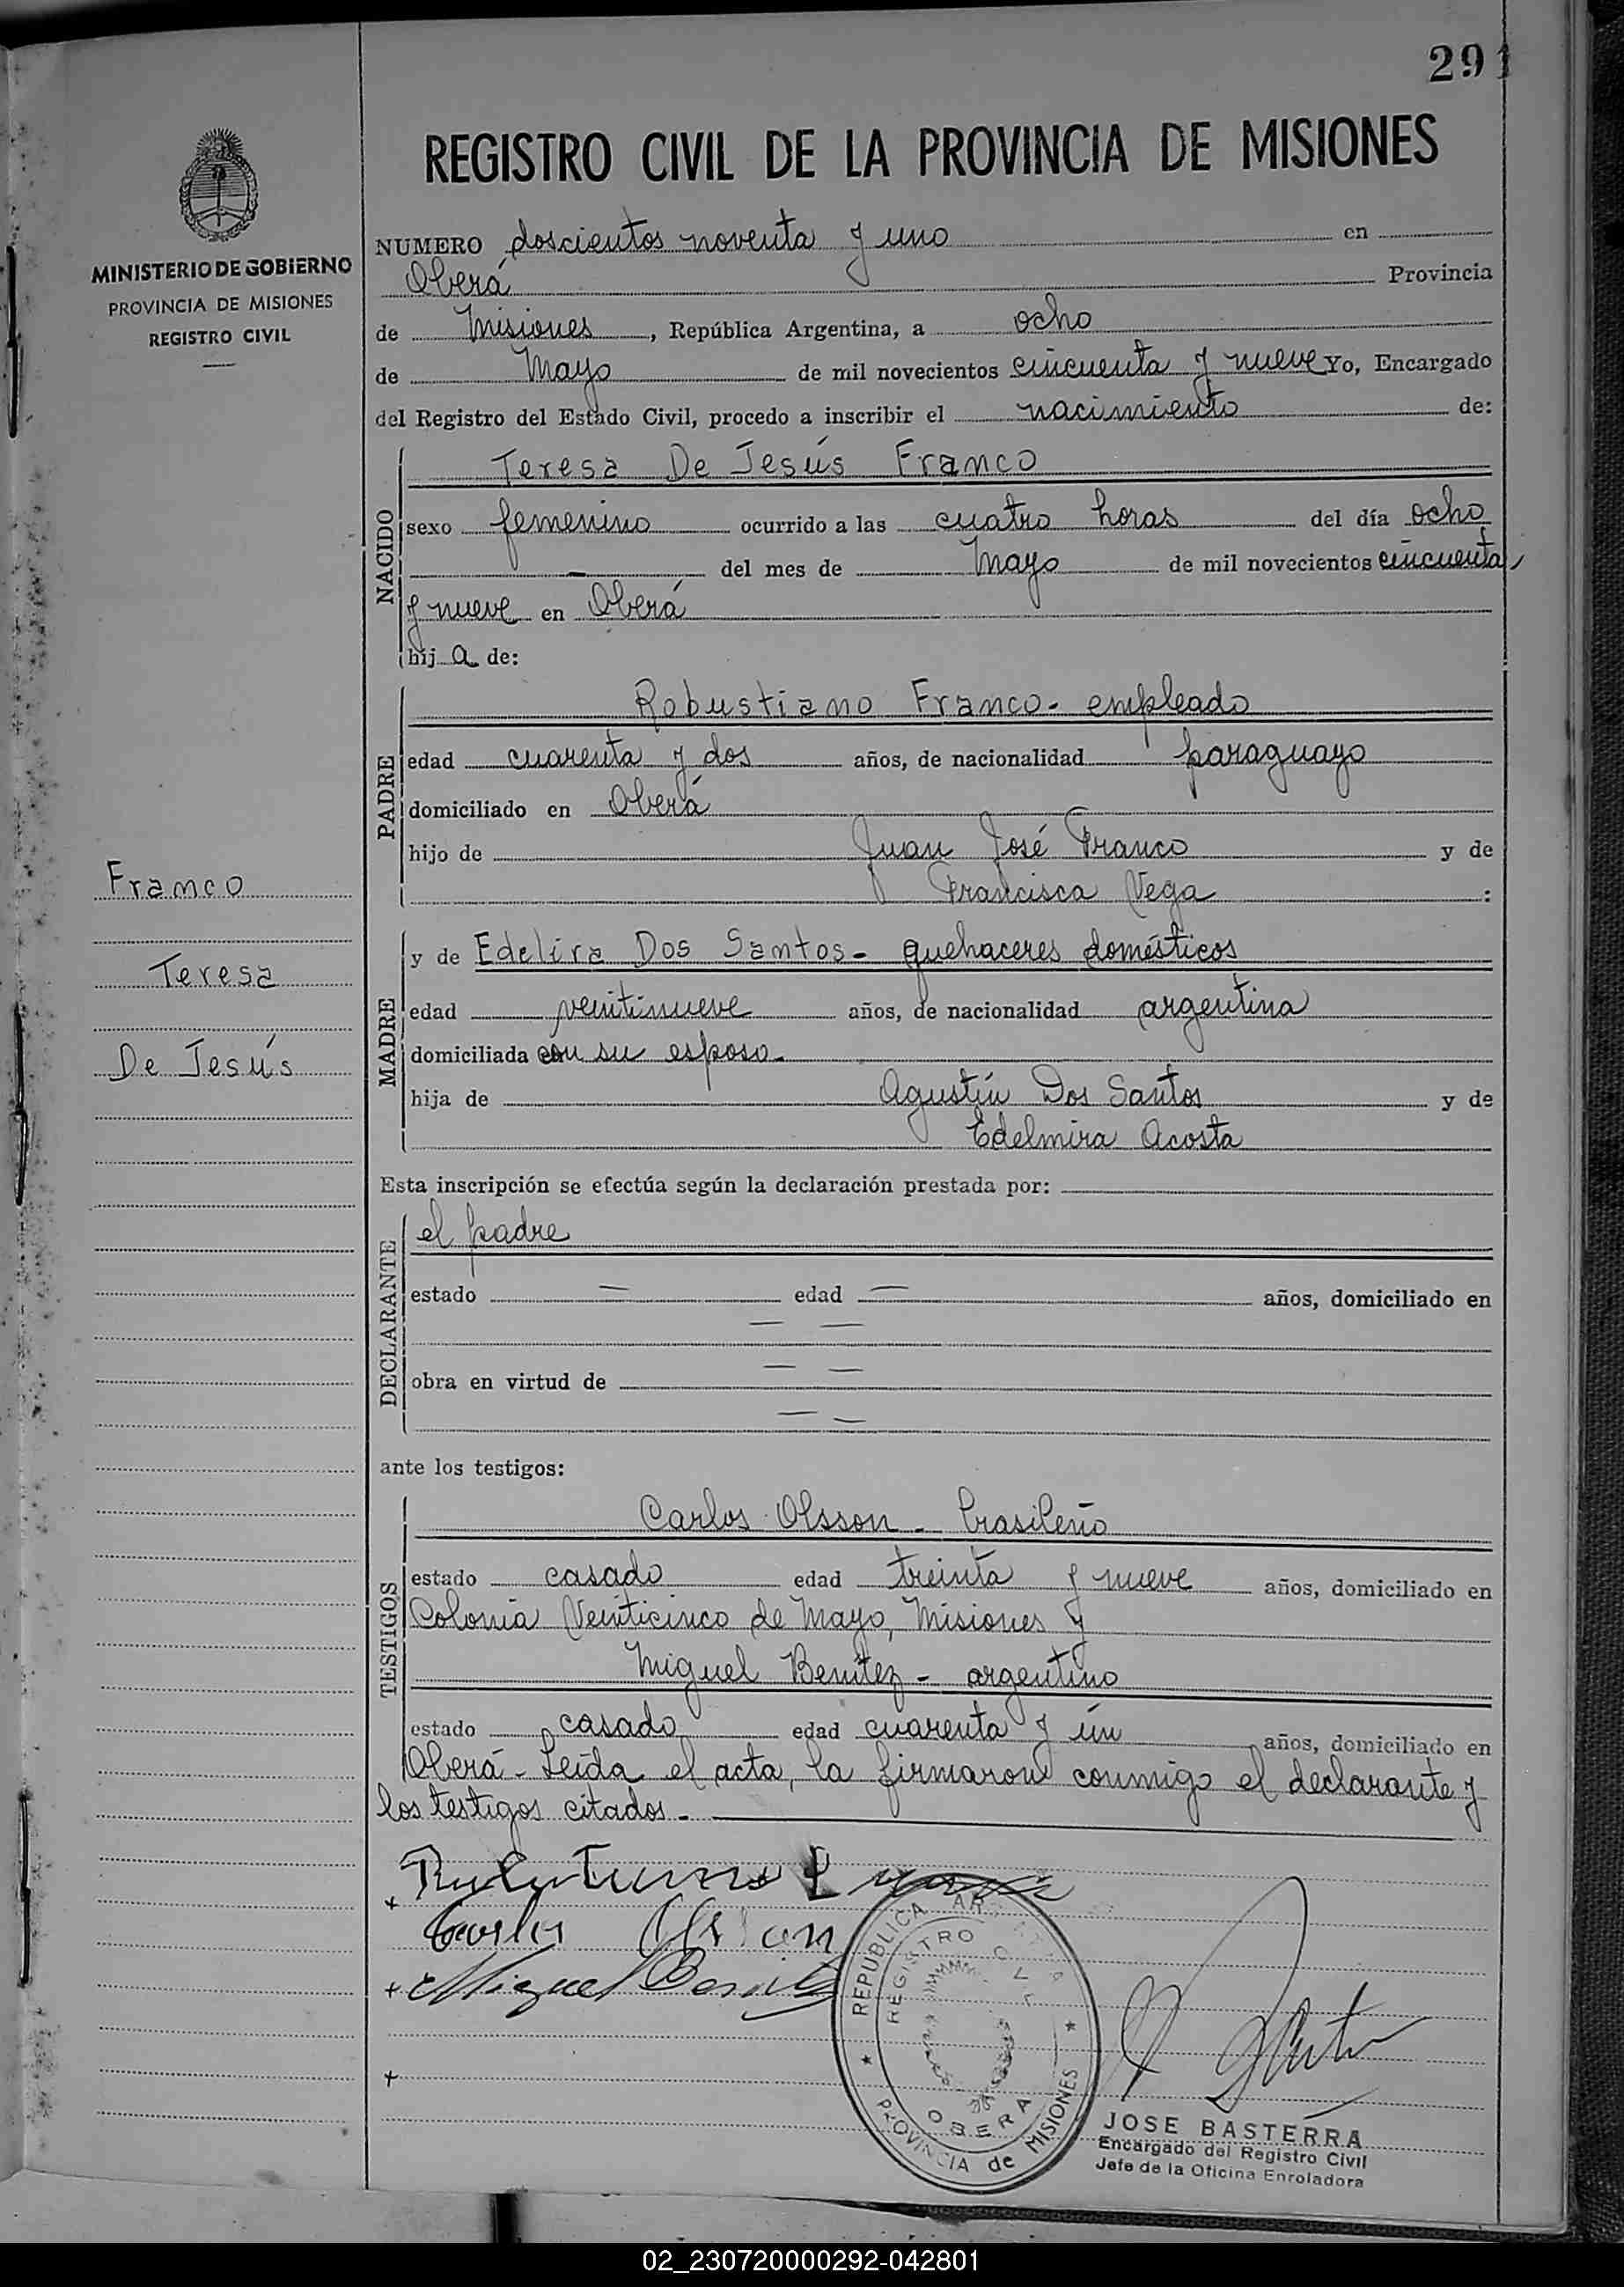 291
REGISTRO CIVIL DE LA PROVINCIA DE MISIONES
MINISTERIO DE GOBIERNO
PROVINCIA DE MISIONES
REGISTRO CIVIL
NUMERO doscientos noventa y uno en
Oberá Provincia
de Misiones, República Argentina, a ocho
de Mayo de mil novecientos cincuenta y nueve Yo, Encargado
del Registro del Estado Civil, procedo a inscribir el nacimiento de:
NACIDO
Teresa De Jesús Franco
sexo femenino ocurrido a las cuatro horas del día ocho
- del mes de Mayo de mil novecientos cincuenta
y nueve en Oberá
hija de:
PADRE
Robustiano Franco - empleado
edad cuarenta y dos años, de nacionalidad paraguayo
domiciliado en Oberá
hijo de Juan José Franco y de
Francisca Vega :
Franco
Teresa
De Jesús
MADRE
y de Edelira Dos Santos - quehaceres domésticos
edad veintinueve años, de nacionalidad argentina
domiciliada con su esposo -
hija de Agustín Dos Santos y de
Edelmira Acosta
Esta inscripción se efectúa según la declaración prestada por:
DECLARANTE
el padre
estado — edad — años, domiciliado en
— —
obra en virtud de — —
— —
ante los testigos:
TESTIGOS
Carlos Olsson - brasileño
estado casado edad treinta y nueve años, domiciliado en
Colonia Veinticinco de Mayo, Misiones y
Miguel Benítez - argentino
estado casado edad cuarenta y un años, domiciliado en
Oberá - Leída el acta, la firmaron conmigo el declarante y
los testigos citados -
Carlos Olsson
Miguel Benitez
REPUBLICA ARGENTINA
REGISTRO CIVIL
OBERA
PROVINCIA de MISIONES
JOSE BASTERRA
Encargado del Registro Civil
Jefe de la Oficina Enroladora
02_230720000292-042801